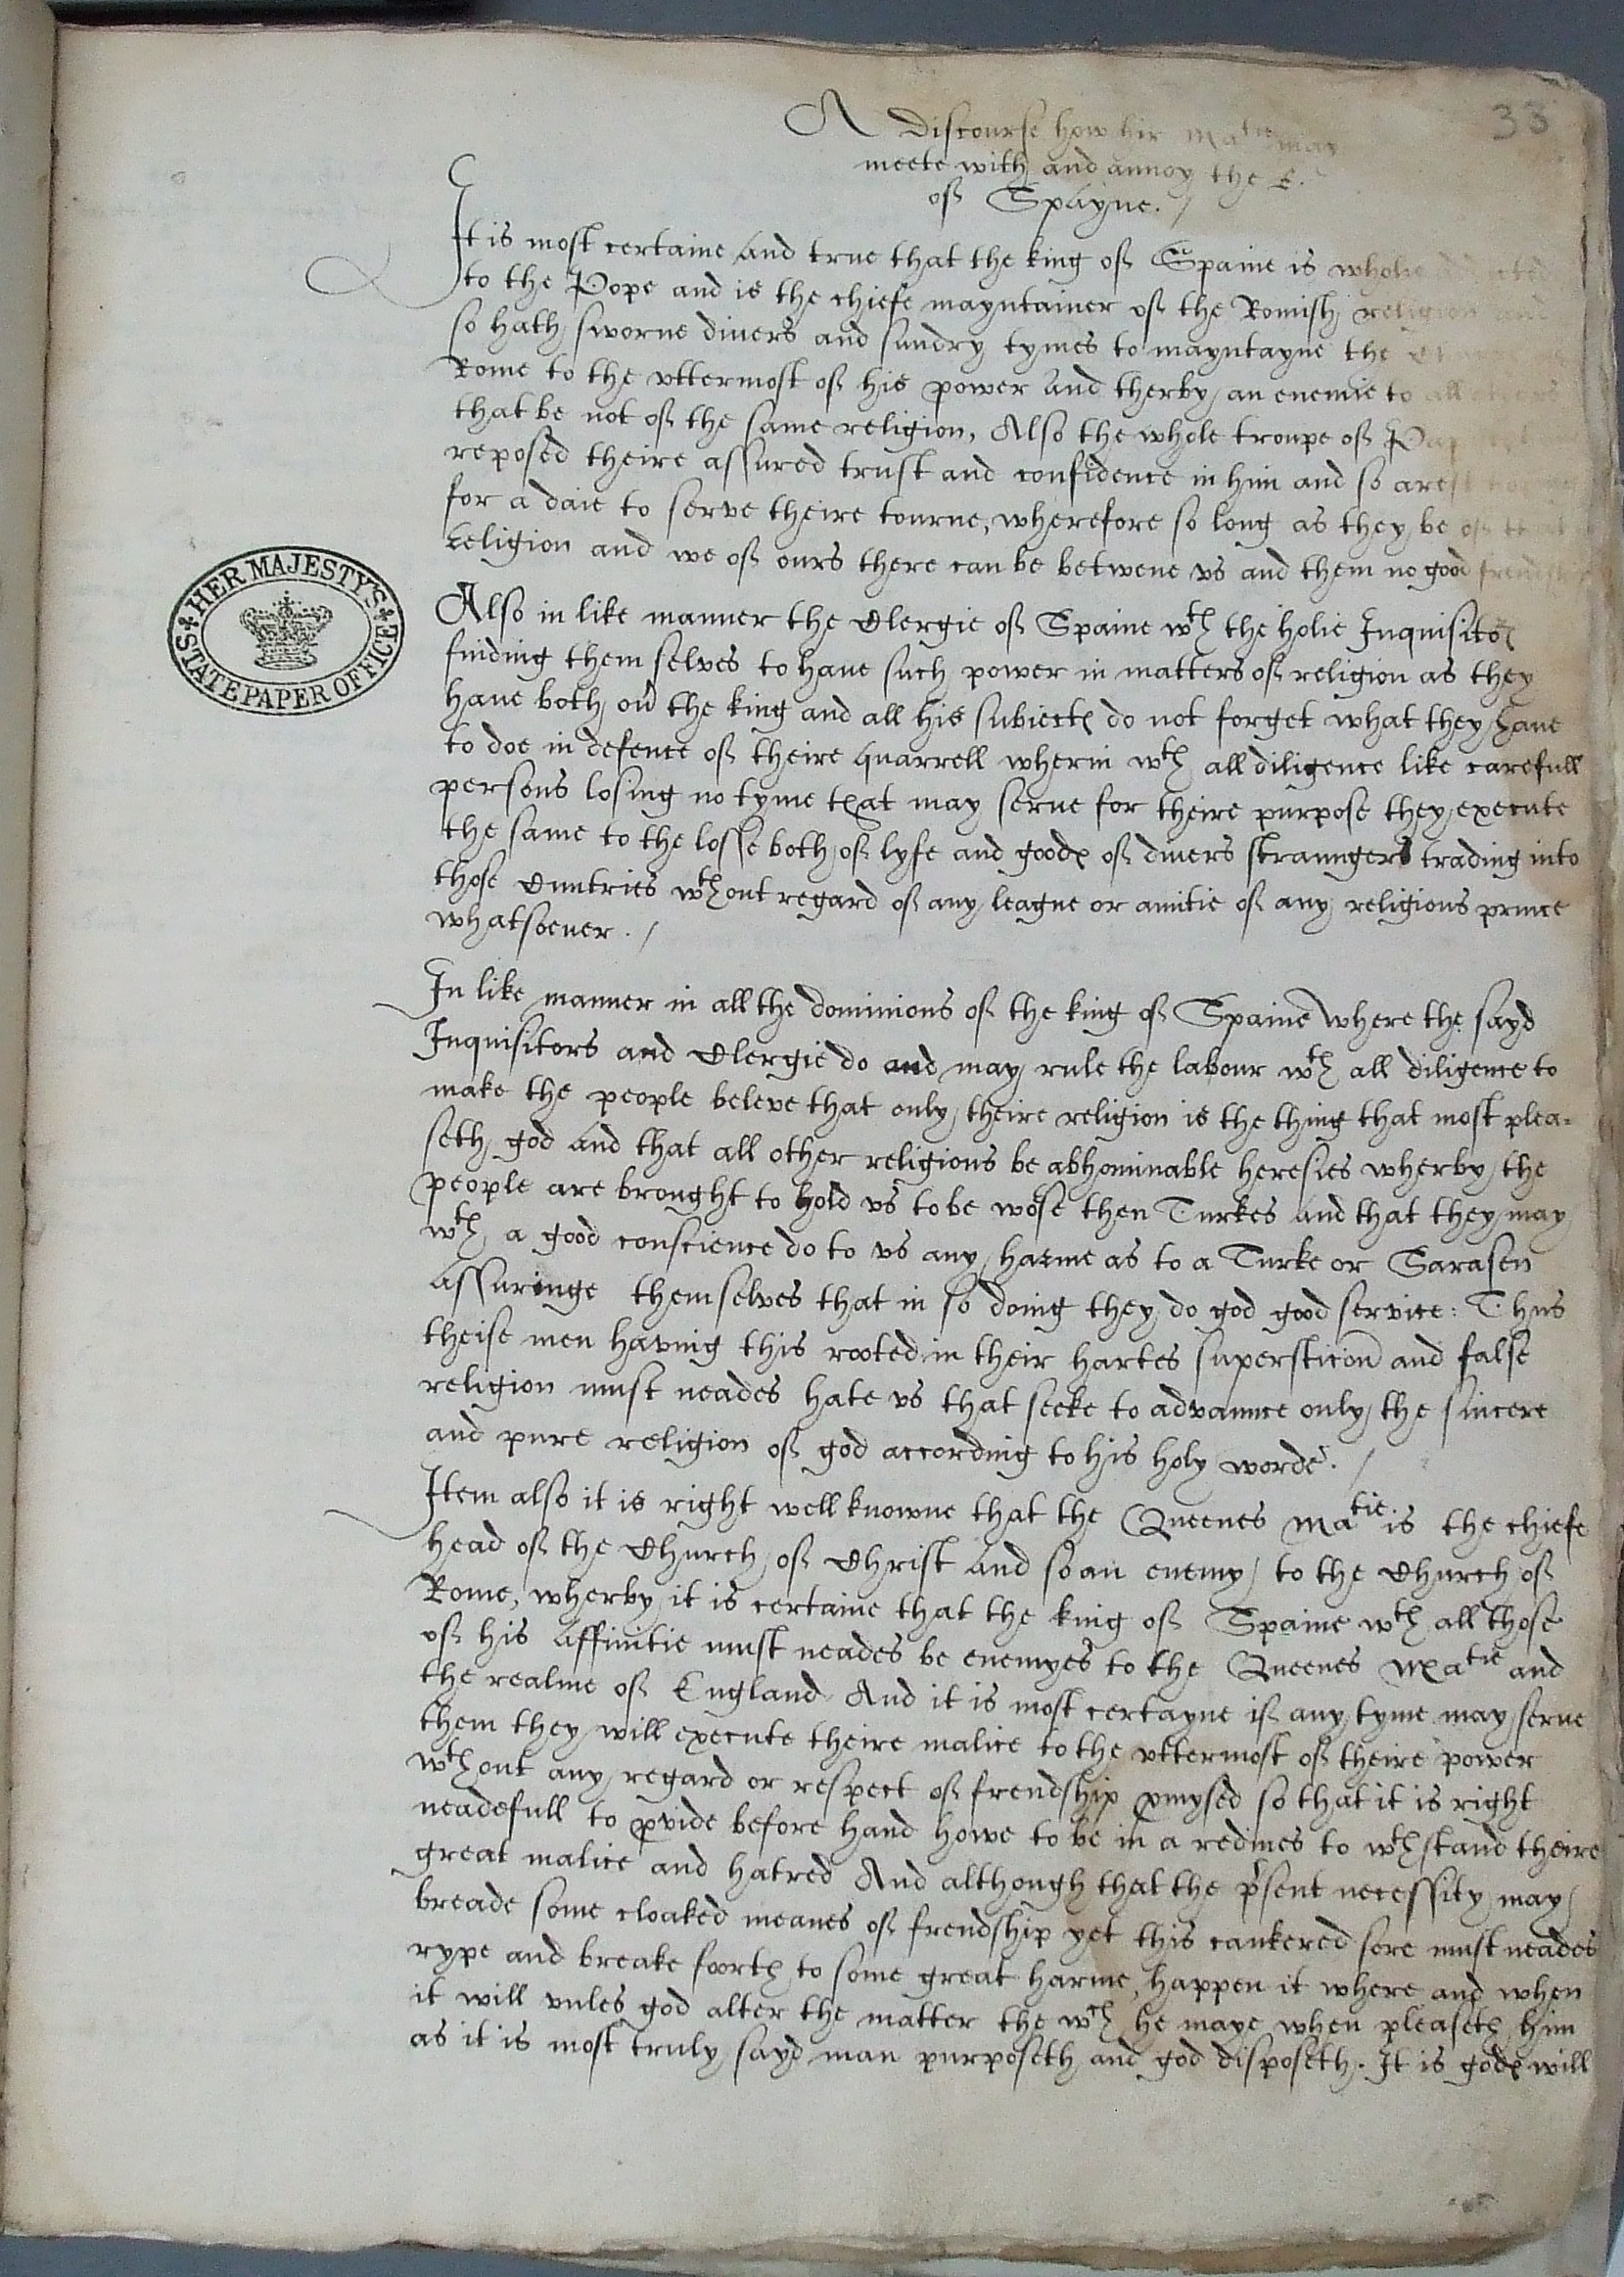 33
A discourse how hir Matie may
meete with and annoy the K.
of Spayne. /
It is most certaine and true that the king of Spaine is wholie
to the Pope and is the chiefe mayntainer of the Romish religion and
so hath sworne divers and sundry tymes to mayntayne the
Rome to the uttermost of his power and therby an enemie to all
that be not of the same religion, Also the whole troupe of
reposed theire assured trust and confidence in him and so are
for a daie to serve theire tourne, wherefore so long as they be of that
religion and we of ours there can be betwene us and them no good
HER MAJESTY'S
STATE PAPER OFFICE
Also in like manner the Clergie of Spaine wth the holie Inquisitors
finding them selves to have such power in matters of religion as they
have both ov the king and all his subiectes do not forget what they have
to doe in defence of theire quarrell wherin wth all diligence like carefull
persons losing no tyme that may serve for theire purpose they execute
the same to the losse both of lyfe and goodes of divers straungers trading into
those Cuntries wthout regard of any league or amitie of any religious prince
whatsoever. /
In like manner in all the dominions of the king of Spaine where the sayd
Inquisitors and Clergie do and may rule the labour wth all diligence to
make the people beleve that only theire religion is the thing that most plea-
seth god and that all other religions be abhominable heresies wherby the
people are brought to hold us to be wose then Turkes and that they may
wth a good conscience do to us any harme as to a Turke or Sarasen
assuringe themselves that in so doing they do god good service: Thus
theise men having this rooted in their hartes supersticon and false
religion must neades hate us that seeke to advaunce only the sincere
and pure religion of god according to his holy worde. /
Item also it is right well knowne that the Queenes Matie is the chiefe
head of the Church of Christ and so an enemy to the Church of
Rome, wherby it is certaine that the king of Spaine wth all those
of his affinitie must neades be enemyes to the Queenes Matie and
the realme of England And it is most certayne if any tyme may serve
them they will execute theire malice to the uttermost of theire power
wthout any regard or respect of frendship pmysed so that it is right
neadefull to pvide before hand howe to be in a redines to wthstand theire
great malice and hatred And although that the psent necessity may
breade some cloaked meanes of frendship yet this cankered sore must neades
rype and breake foorth to some great harme, happen it where and when
it will unles god alter the matter the wth he maye when pleaseth him
as it is most truly sayd man purposeth and god disposeth. It is godes will